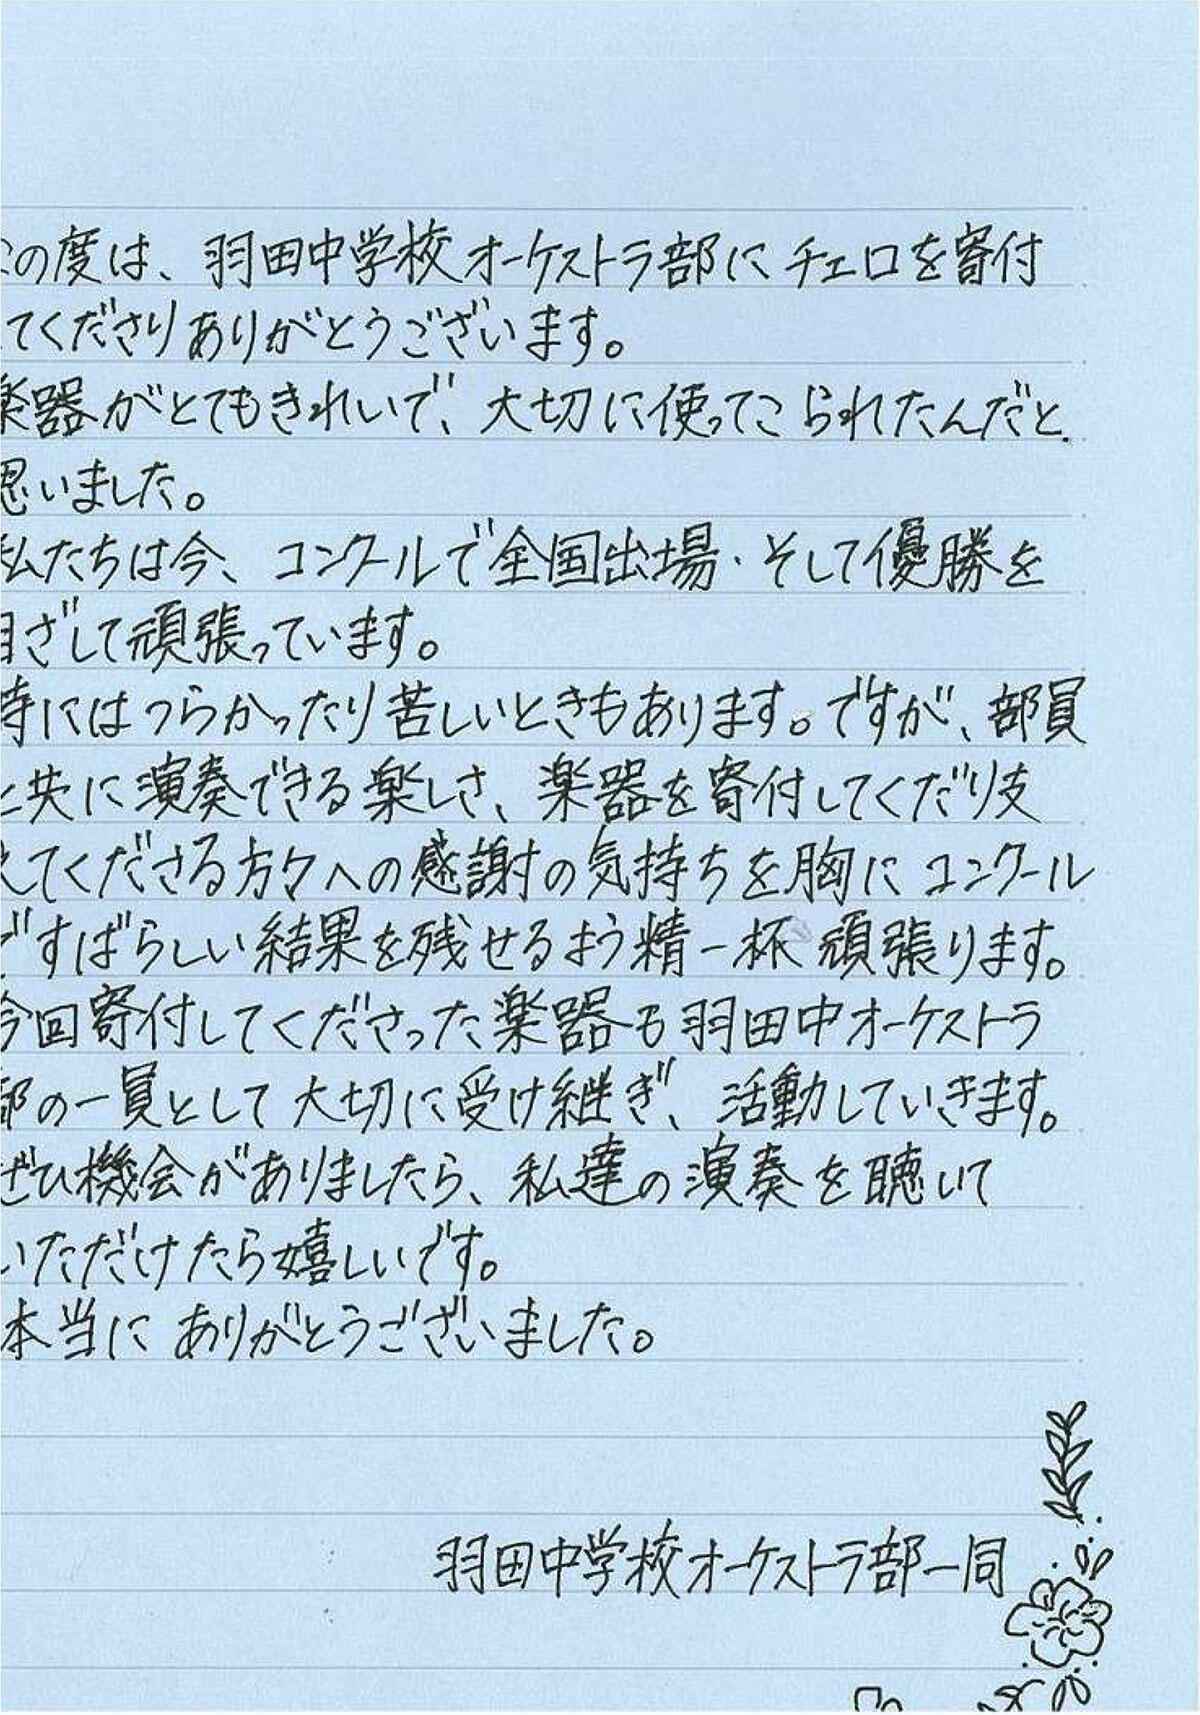 この度は、羽田中学校オーケストラ部にチェロを寄付
てくださりありがとうございます。
楽器がとてもきれいで、大切に使ってこられたんだと
思いました。
私たちは今、コンクールで全国出場・そして優勝を
目ざして頑張っています。
時にはつらかったり苦しいときもあります。ですが、部員
と共に演奏できる楽しさ、楽器を寄付してくだり支
えてくださる方々への感謝の気持ちを胸にコンクール
ですばらしい結果を残せるよう精一杯頑張ります。
今回寄付してくださった楽器も羽田中オーケストラ
部の一員として大切に受け継ぎ、活動していきます。
ぜひ機会がありましたら、私達の演奏を聴いて
いただけたら嬉しいです。
本当にありがとうございました。
羽田中学校オーケストラ部一同